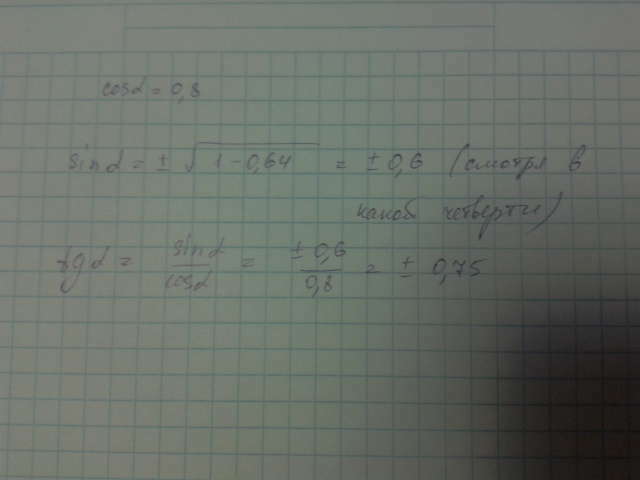 cosα = 0,8
sinα = ± √1-0,64 = ± 0,6 (смотря в
какой четверти)
tgα = sinα/cosα = ± 0,6/0,8 = ± 0,75